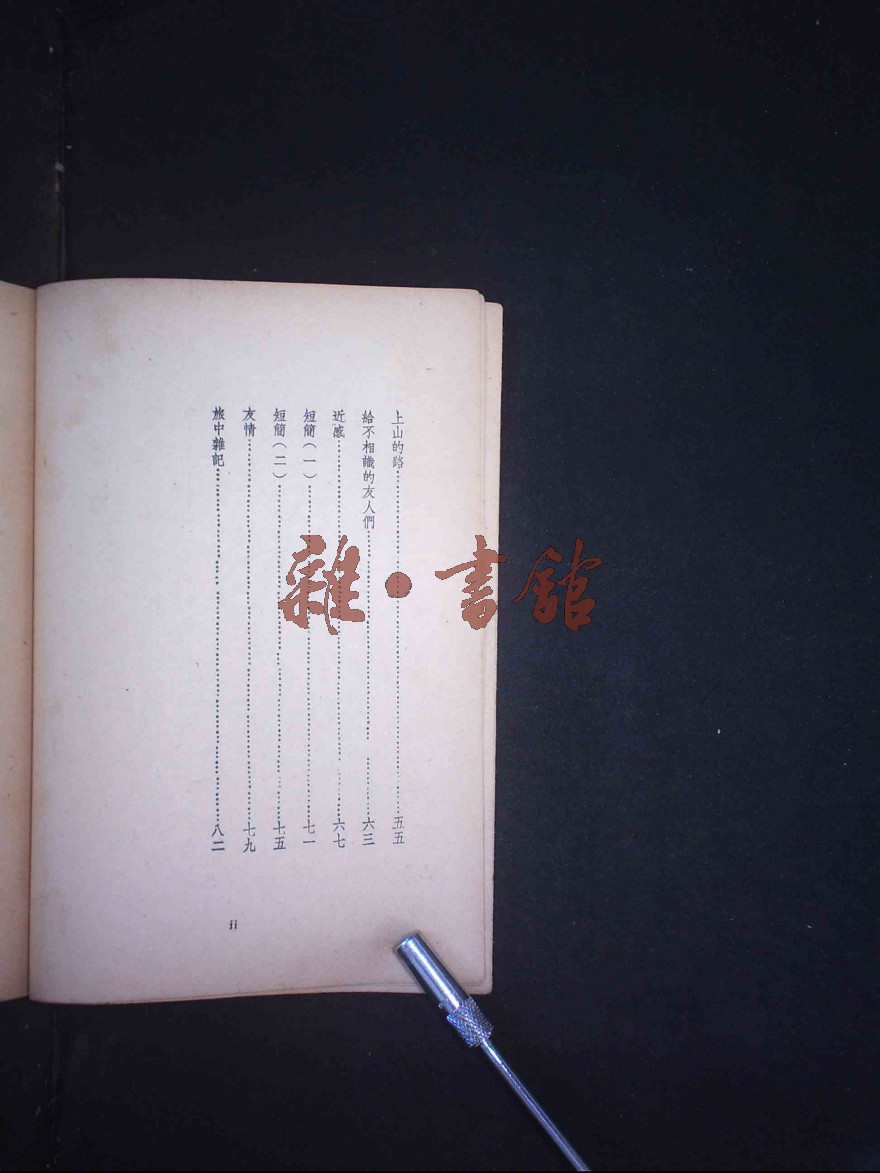 上山的路……五五
給不相識的友人們……六三
近感……六七
短簡（一）……七一
短簡（二）……七五
友情……七九
旅中雜記……八二
ii
雜·書館